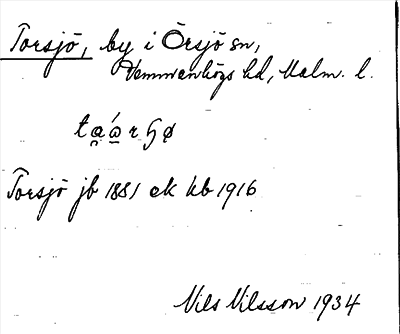 Torsjö, by i Örsjö sn,
Vemmenhögs hd, Malm. l.
Torsjö jb 1881 ek kb 1916
Nils Nilsson 1934